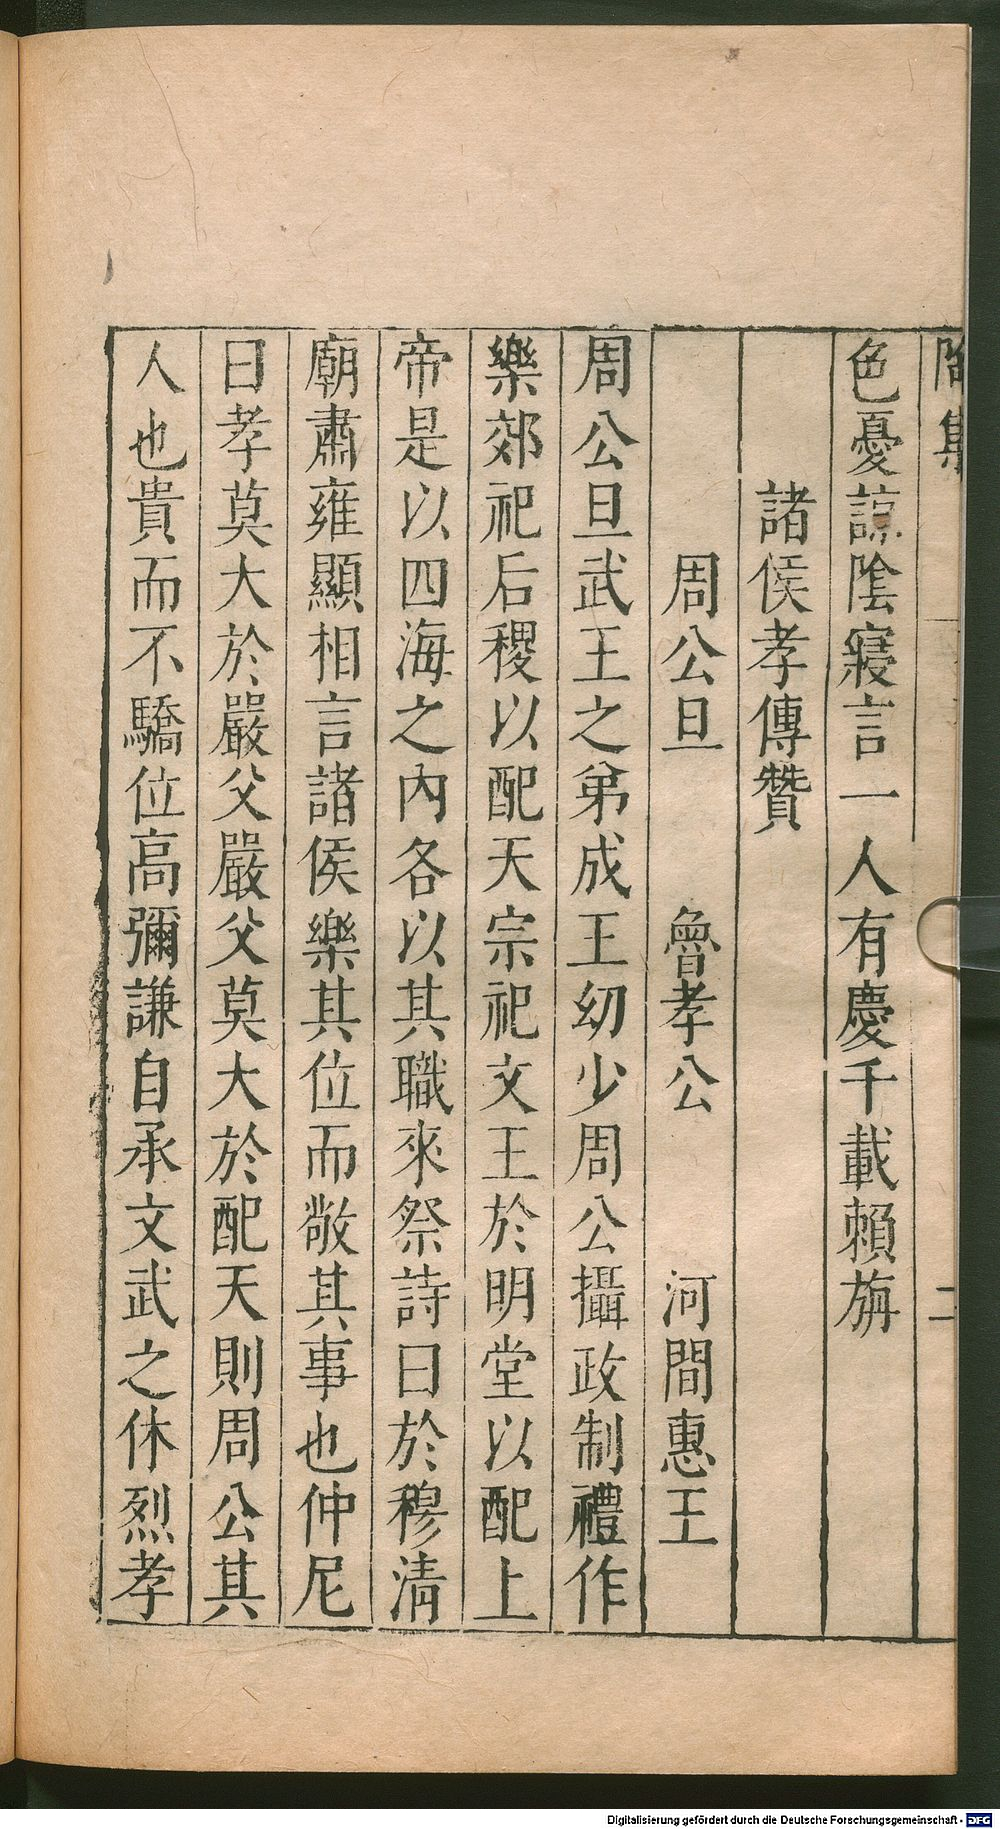 陶集
二
色憂諒陰寢言一人有慶千載賴旃
諸侯孝傳贊
周公旦 魯孝公 河間惠王
周公旦武王之弟成王幼少周公攝政制禮作
樂郊祀后稷以配天宗祀文王於明堂以配上
帝是以四海之內各以其職來祭詩曰於穆清
廟肅雍顯相言諸侯樂其位而敬其事也仲尼
曰孝莫大於嚴父嚴父莫大於配天則周公其
人也貴而不驕位高彌謙自承文武之休烈孝
Digitalisierung gefördert durch die Deutsche Forschungsgemeinschaft - DFG